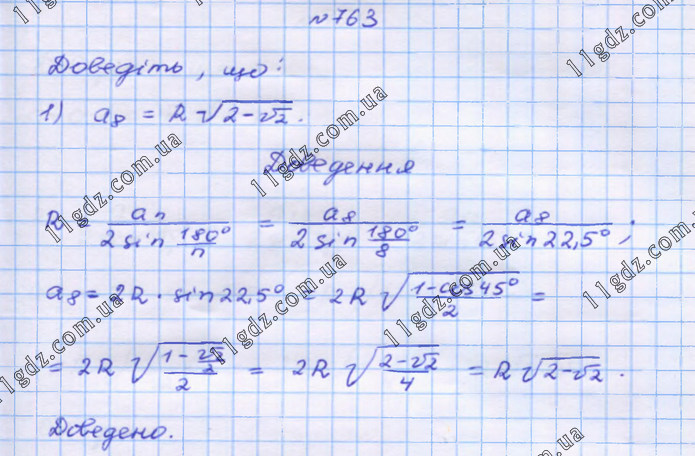 №763
Доведіть, що:
1) a₈ = R√(2-√2).
Доведення
R = aₙ/(2 sin 180°/n) = a₈/(2 sin 180°/8) = a₈/(2 sin 22,5°);
a₈ = 2R · sin 22,5° = 2R √((1-cos 45°)/2) =
= 2R √((1-√2/2)/2) = 2R √((2-√2)/4) = R√(2-√2).
Доведено.
11gdz.com.ua
11gdz.com.ua
11gdz.com.ua
11gdz.com.ua
11gdz.com.ua
11gdz.com.ua
11gdz.com.ua
11gdz.com.ua